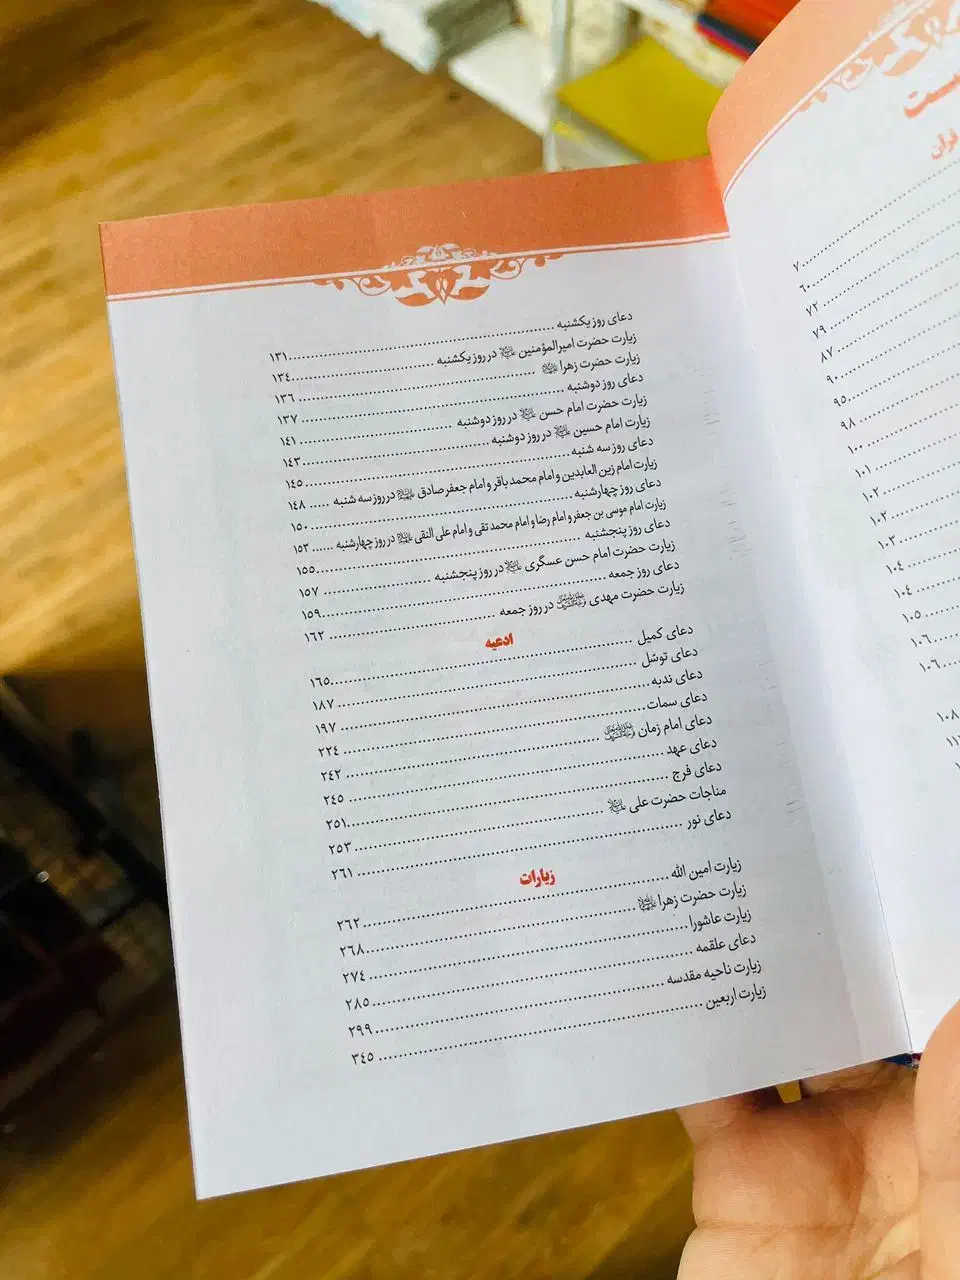 ست
قرآن
۷
٦۰
۷۲
۷۹
۸۷
۹۰
۹۵
۹۸
۱۰۰
۱۰۱
۱۰۲
۱۰۲
۱۰۳
۱۰٤
۱۰٤
۱۰۵
۱۰٦
۱۰٦
۱۰۸
دعای روز یکشنبه ........ ۱۳۱
زیارت حضرت امیرالمؤمنین در روز یکشنبه ........ ۱۳٤
زیارت حضرت زهرا ........ ۱۳٦
دعای روز دوشنبه ........ ۱۳۷
زیارت حضرت امام حسن در روز دوشنبه ........ ۱٤۱
زیارت امام حسین در روز دوشنبه ........ ۱٤۳
دعای روز سه شنبه ........ ۱٤۵
زیارت امام زین العابدین و امام محمد باقر و امام جعفر صادق در روز سه شنبه ..... ۱٤۸
دعای روز چهارشنبه ........ ۱۵۰
زیارت امام موسی بن جعفر و امام رضا و امام محمد تقی و امام علی النقی در روز چهارشنبه ...... ۱۵۳
دعای روز پنجشنبه ........ ۱۵۵
زیارت حضرت امام حسن عسگری در روز پنجشنبه ........ ۱۵۷
دعای روز جمعه ........ ۱۵۹
زیارت حضرت مهدی در روز جمعه ........ ۱٦۲
ادعیه
دعای کمیل ........ ۱٦۵
دعای توسّل ........ ۱۸۷
دعای ندبه ........ ۱۹۷
دعای سمات ........ ۲۲٤
دعای امام زمان ........ ۲٤۲
دعای عهد ........ ۲٤۵
دعای فرج ........ ۲۵۱
مناجات حضرت علی ........ ۲۵۳
دعای نور ........ ۲٦۱
زیارات
زیارت امین الله ........ ۲٦۲
زیارت حضرت زهرا ........ ۲٦۸
زیارت عاشورا ........ ۲۷٤
دعای علقمه ........ ۲۸۵
زیارت ناحیه مقدسه ........ ۲۹۹
زیارت اربعین ........ ۳٤۵